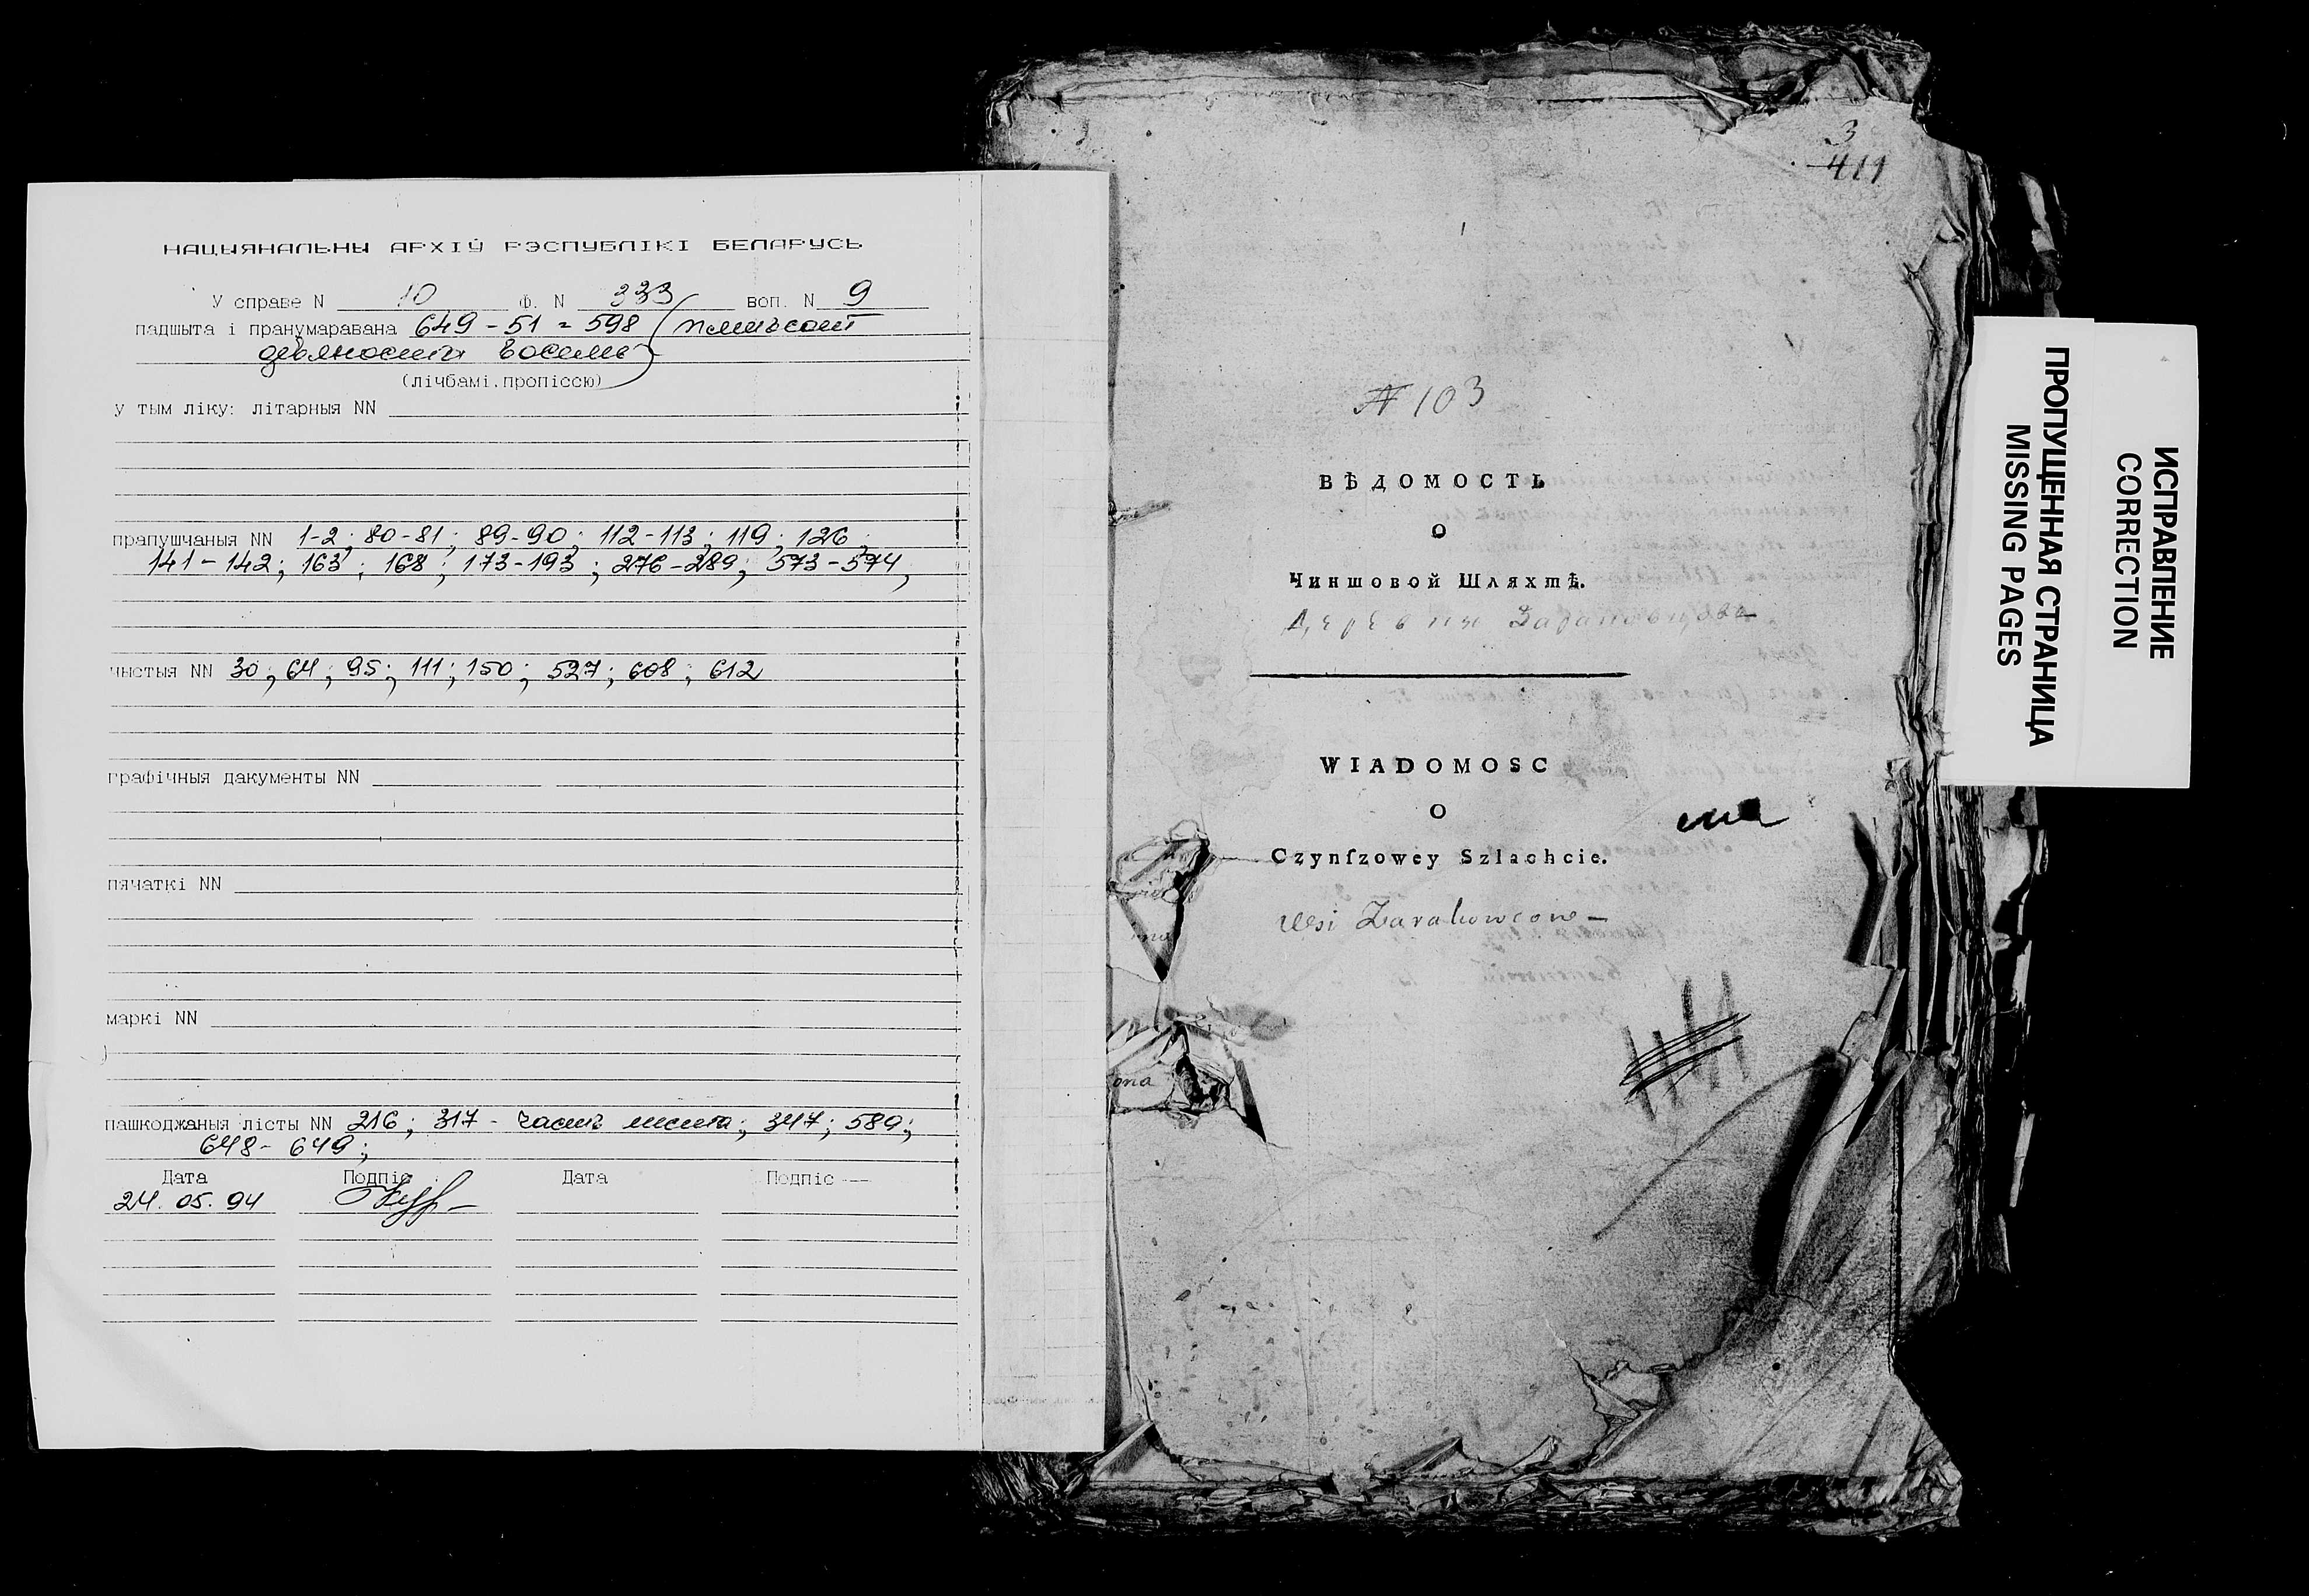 НАЦЫЯНАЛЬНЫ АРХІЎ РЭСПУБЛІКІ БЕЛАРУСЬ
У справе N 10 ф. N 333 воп. N 9
падшыта і пранумаравана 649-51=598 (пятьсот
девяносто восемь)
(лічбамі, пропіссю)
у тым ліку: літарныя NN
прапушчаныя NN 1-2; 80-81; 89-90; 112-113; 119; 126;
141-142; 163; 168; 173-193; 276-289; 573-574,
чыстыя NN 30; 64; 95; 111; 150; 527; 608; 612
графічныя дакументы NN
пячаткі NN
маркі NN
пашкоджаныя лісты NN 216; 317 - часть листа; 347; 589;
648-649;
Дата Подпіс Дата Подпіс
24.05.94
3
411
N 103
ВѢДОМОСТЬ
О
Чиншовой Шляхтѣ.
Деревни
WIADOMOSC
O
Czynſzowey Szlachcie.
Wsi Zarakowcow
ona
ПРОПУЩЕННАЯ СТРАНИЦА
MISSING PAGES
ИСПРАВЛЕНИЕ
CORRECTION